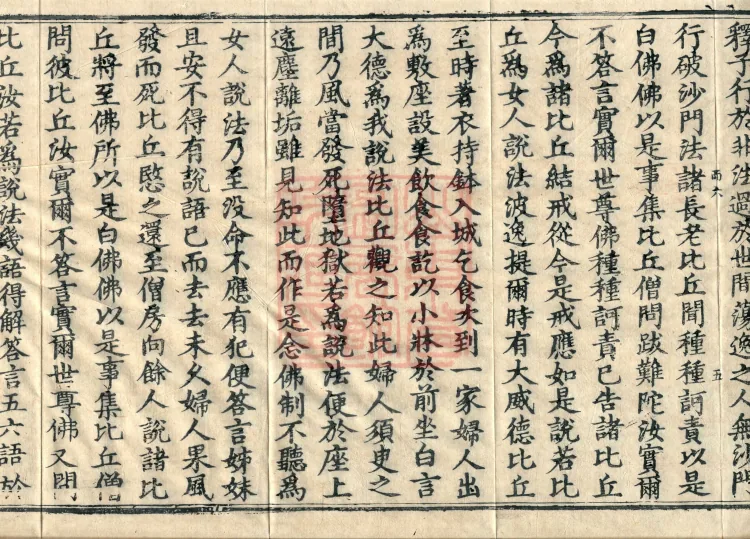 釋子行於非法過於世間蕩逸之人無沙門
行破沙門法諸長老比丘聞種種訶責以是
白佛佛以是事集比丘僧問跋難陀汝實爾
不答言實爾世尊佛種種訶責已告諸比丘
今爲諸比丘結戒從今是戒應如是說若比
丘爲女人說法波逸提爾時有大威德比丘
至時著衣持鉢入城乞食次到一家婦人出
爲敷座設美飲食食訖以小牀於前坐白言
大德爲我說法比丘觀之知此婦人須臾之
間乃風當發死墮地獄若爲說法便於座上
遠塵離垢雖見知此而作是念佛制不聽爲
女人說法乃至沒命不應有犯便答言姊妹
且安不得有說語已而去去未久婦人果風
發而死比丘愍之還至僧房向餘人說諸比
丘將至佛所以是白佛佛以是事集比丘僧
問彼比丘汝實爾不答言實爾世尊佛又問
比丘汝若爲說法幾語得解答言五六語於